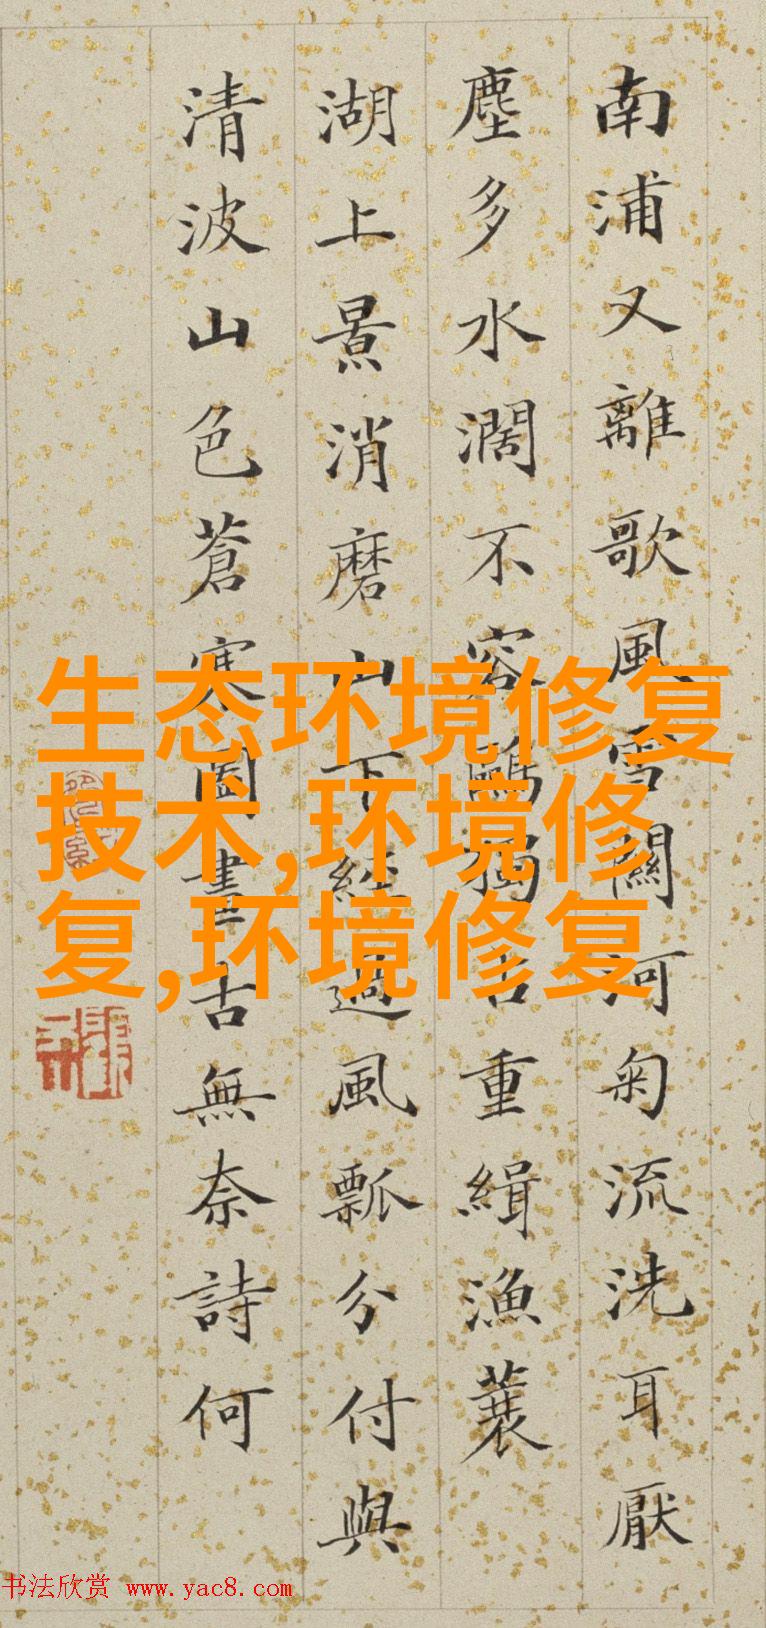 南浦又離歌風雪關河匊流洗耳厭
塵多水濶不容鷗獨占重緝漁蓑
湖上景消磨山下經過風瓢分付與
清波山色蒼寒圖畫古無奈詩何
生态环境修复
技术,环境修
复,环境修复
书法欣赏 www.yac8.com